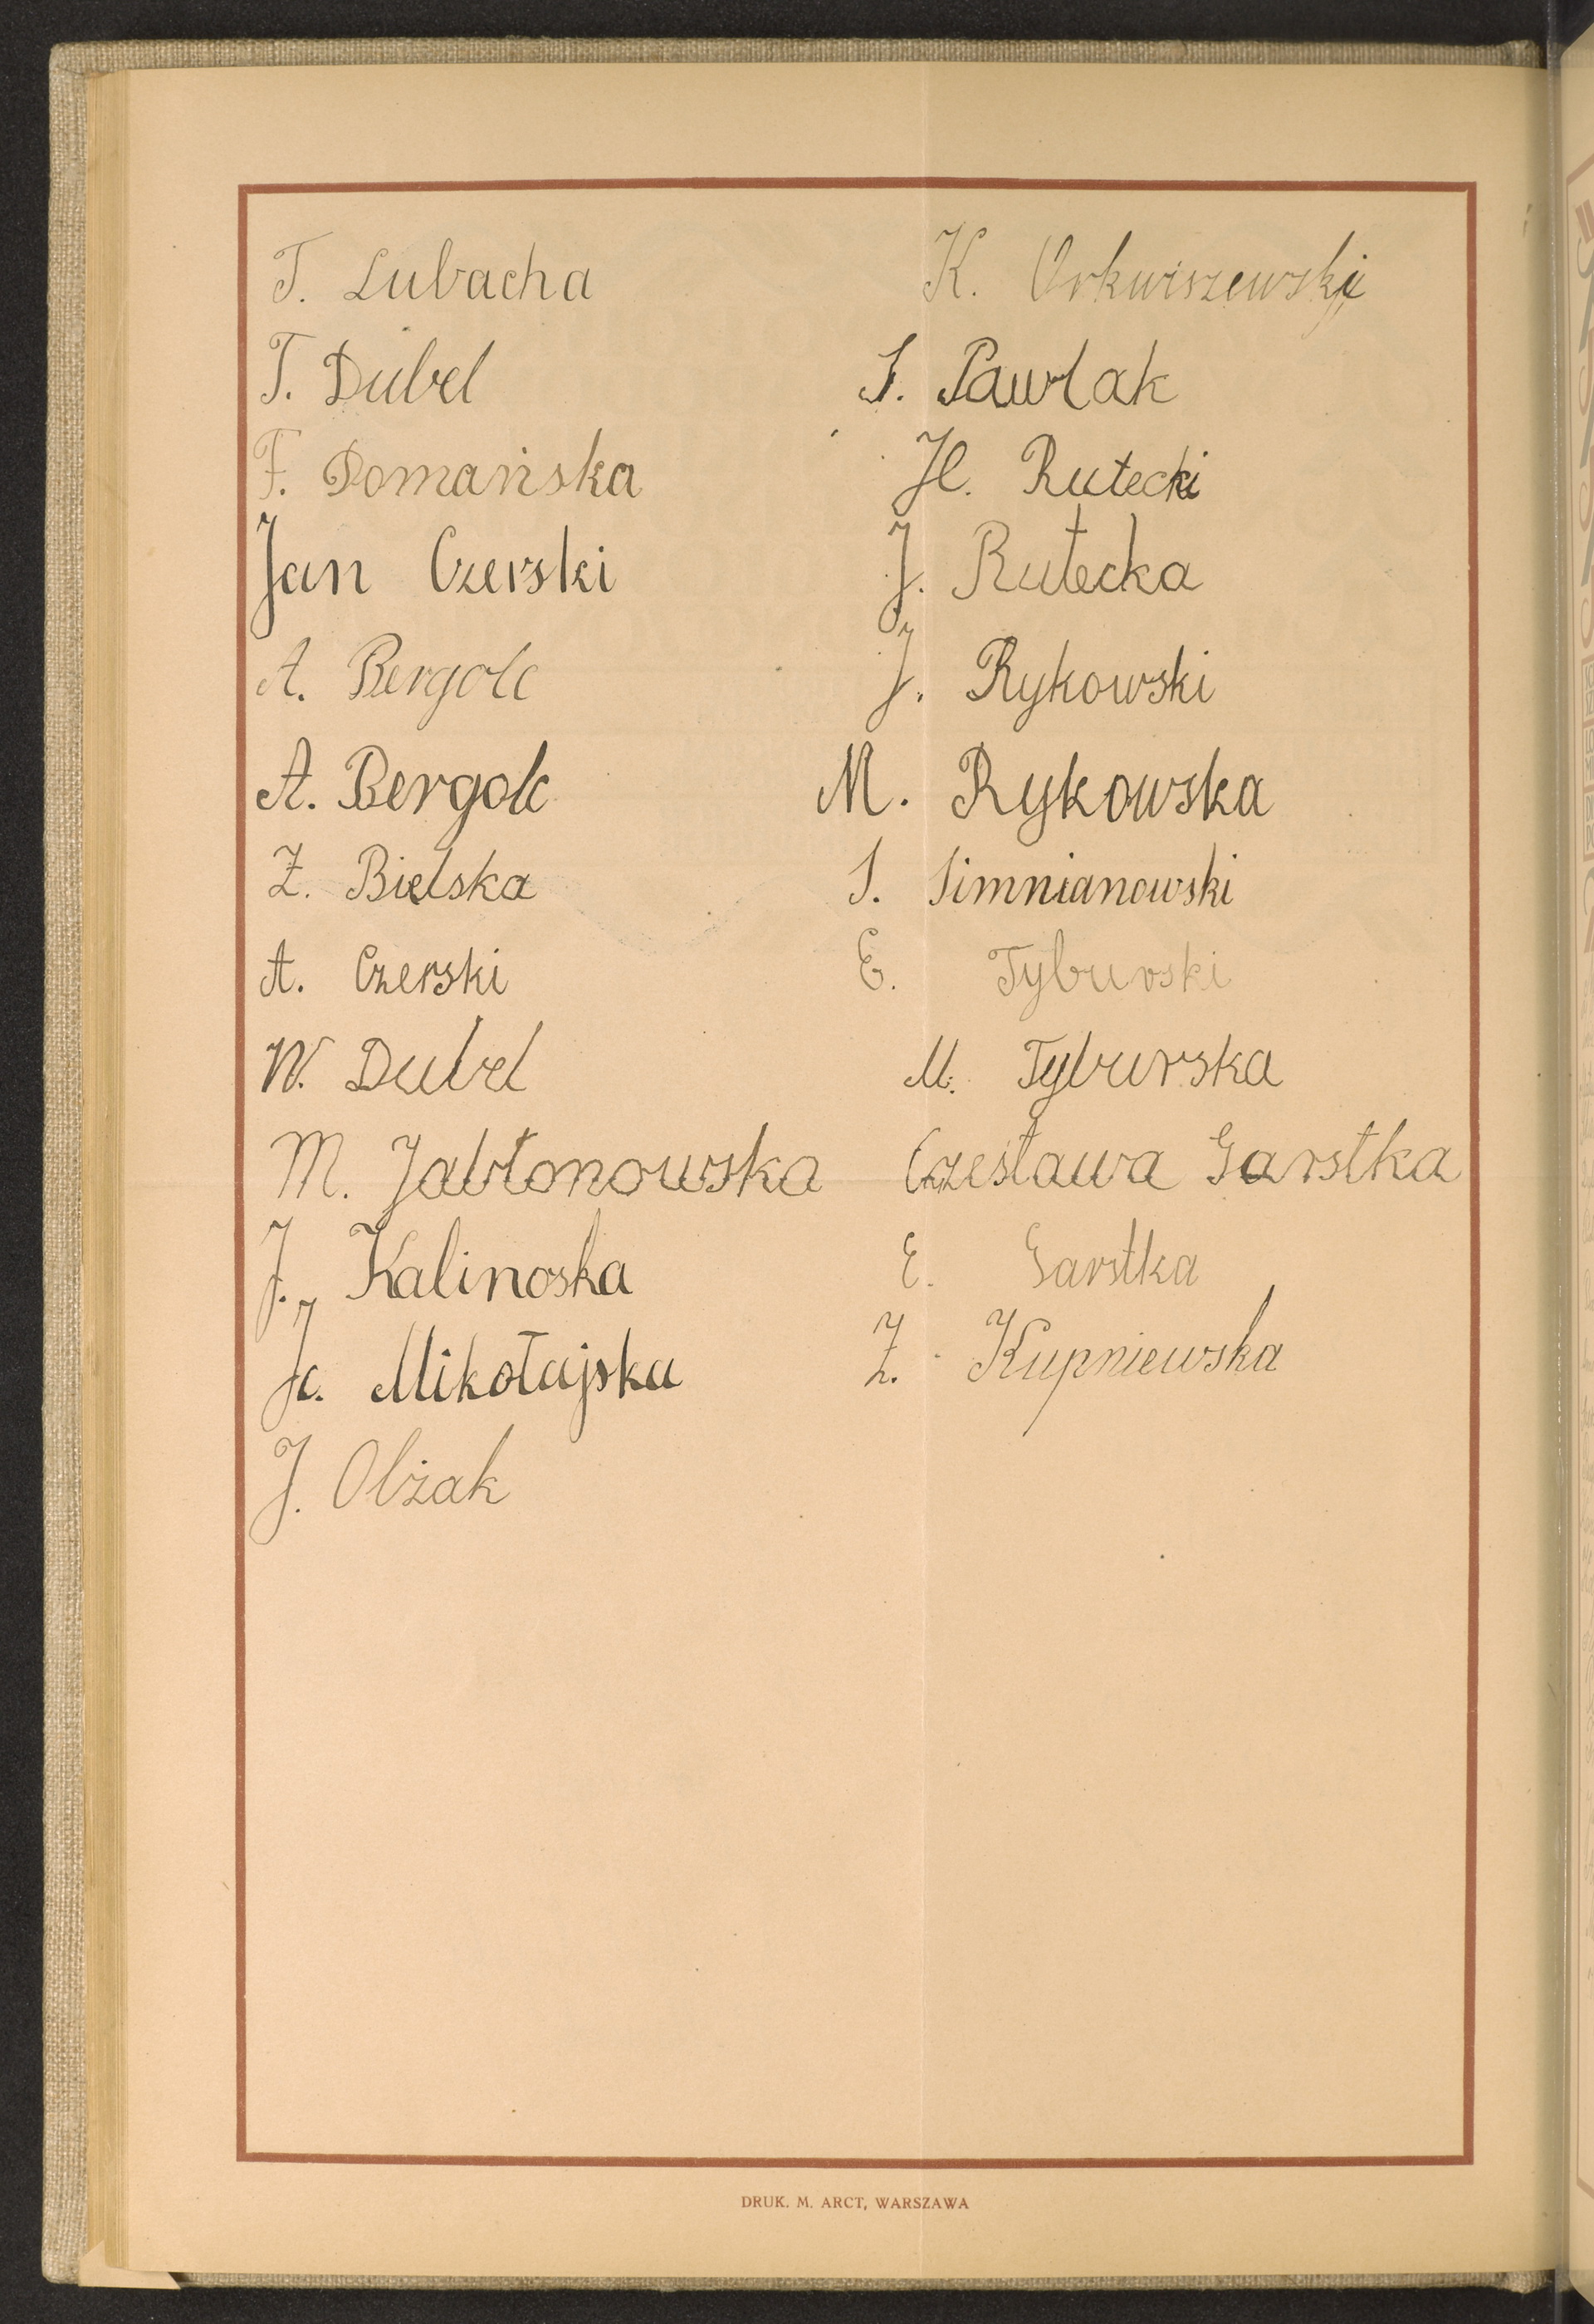 T. Lubacha
T. Dubel
F. Domańska
Jan Czerski
A. Bergolc
A. Bergolc
Z. Bielska
A. Czerski
W. Dubel
M. Jabłonowska
J. Kalinoska
J. Mikołajska
J. Olżak
K.
S. Pawlak
H. Rutecki
J. Rutecka
J. Rykowski
M. Rykowska
S. Simnianowski
E. Tyburski
M. Tyburska
Czesława Garstka
E. Garstka
Z. Kupniewska
DRUK. M. ARCT, WARSZAWA